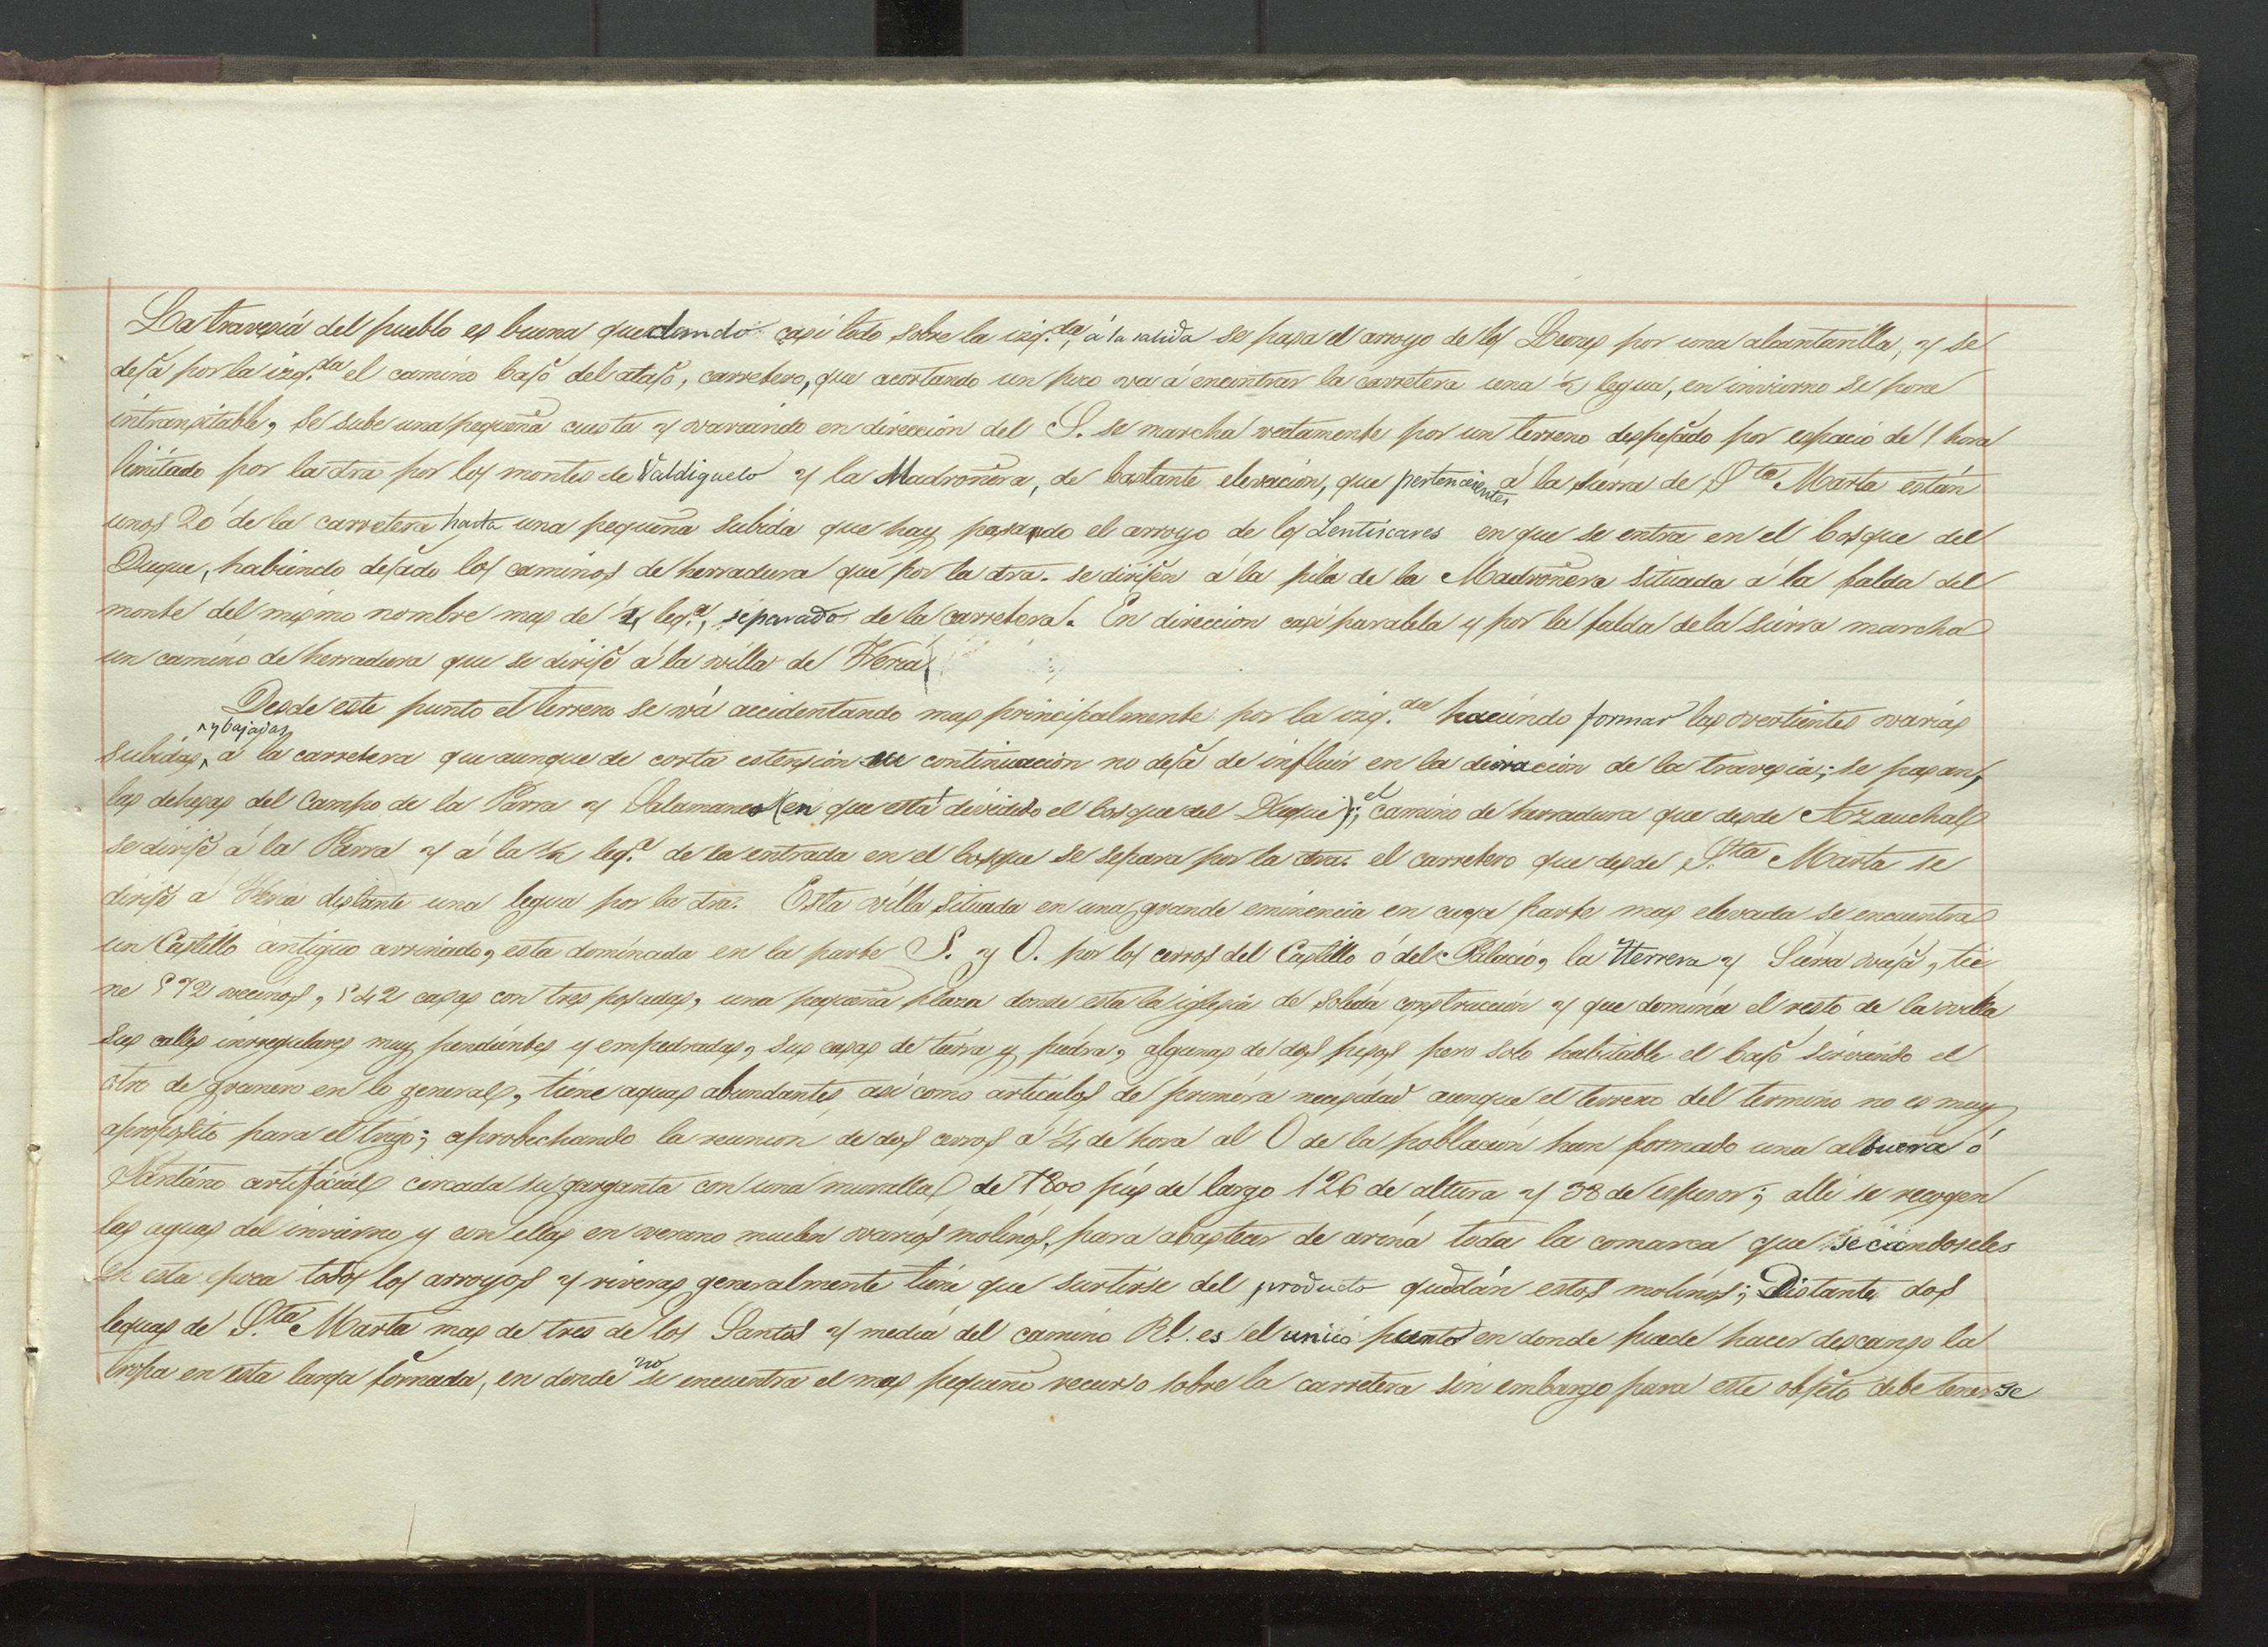 La travesia del pueblo es buena quedando casi todo sobre la izq.da, á la salida se pasa el arroyo de los por una alcantarilla, y se
deja por la izq.da el camino bajo del atajo, carretero, que acortando un poco va á encontrar la carretera una ½ legua, en invierno se pone
intransitable, se sube una pequeña cuesta y variando en direccion del S. se marcha rectamente por un terreno despejado por espacio de 1 hora
limitado por la dra por los montes de Valdiguelo y la Madroñera, de bastante elevacion, que pertenecientes á la sierra de S.ta Marta están
unos 20' de la carretera hasta una pequeña subida que hay pasando el arroyo de los Lentiscares en que se entra en el bosque del
Duque, habiendo dejado los caminos de herradura que por la dra. se dirijen á la pila de la Madroñera situada á la falda del
monte del mismo nombre mas de ¼ leg.a, separado de la carretera. En direccion casi paralela y por la falda de la sierra marcha
un camino de herradura que se dirije á la villa de Feria
Desde este punto el terreno se vá accidentando mas principalmente por la izq.da haciendo formar las vertientes varias
subidas ^y bajadas á la carretera que aunque de corta estension su continuacion no deja de influir en la duracion de la travesia; se pasan,
las dehesas del Campo de la Parra y Salamanca (en que está dividido el bosque del Duque); el camino de herradura que desde Azauchal
se dirije á la Parra y á la ½ leg.a de la entrada en el bosque se separa por la dra. el carretero que desde S.ta Marta se
dirije á Feria distante una legua por la dra. Esta villa situada en una grande eminencia en cuya parte mas elevada se encuentra
un Castillo antiguo arruinado, esta dominada en la parte S. y O. por los cerros del Castillo ó del Palacio, la Herrera y Sierra vieja, tie
ne 572 vecinos, 542 casas con tres posadas, una pequeña plaza donde esta la iglesia de solida construccion y que domina el resto de la villa
sus calles irregulares muy pendientes y empedradas, sus casas de tierra y piedra, algunas de dos pisos pero solo habitable el bajo sirviendo el
otro de granero en lo general, tiene aguas abundantes asi como articulos de primera necesidad aunque el terreno del termino no es muy
aproposito para el trigo; aprobechando la reunion de dos cerros á ¼ de hora al O de la poblacion han formado una albuera ó
Pantano artificial cercada su garganta con una muralla de 1800 pies de largo 126 de altura y 38 de espesor; alli se recogen
las aguas del invierno y con ellas en verano muelen varios molinos, para abastecer de arina toda la comarca que secandoseles
en esta epoca todos los arroyos y riveras generalmente tiene que surtirse del producto que dán estos molinos; Distante dos
leguas de S.ta Marta mas de tres de los Santos y media del camino Rl. es el unico punto en donde puede hacer descanso la
tropa en esta larga jornada, en donde no se encuentra el mas pequeño recurso sobre la carretera sin embargo para este objeto debe tenerse